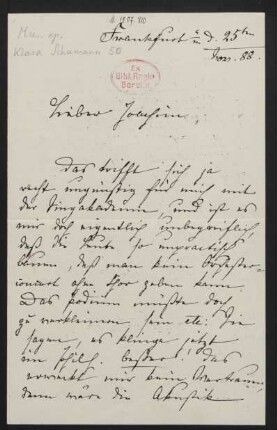 Mus. ep.
Klara Schumann 50
Frankfurt a/M d. 25ten
Nov. 88.
Ex
Bibl. Regia
Berolin.
Lieber Joachim,
das trifft sich ja
recht ungünstig für mich mit
der Singakademie, und ist es
mir doch eigentlich unbegreiflich
daß die Leute so unpractisch
bauen, daß man kein Orchester-
concert ohne Chor geben kann.
Das Podium müßte doch
zu verkleinern sein etc: Sie
sagen, es klinge jetzt
im Philh. besser! Das
erweckt mir kein Vertrauen,
denn wäre die Akustik